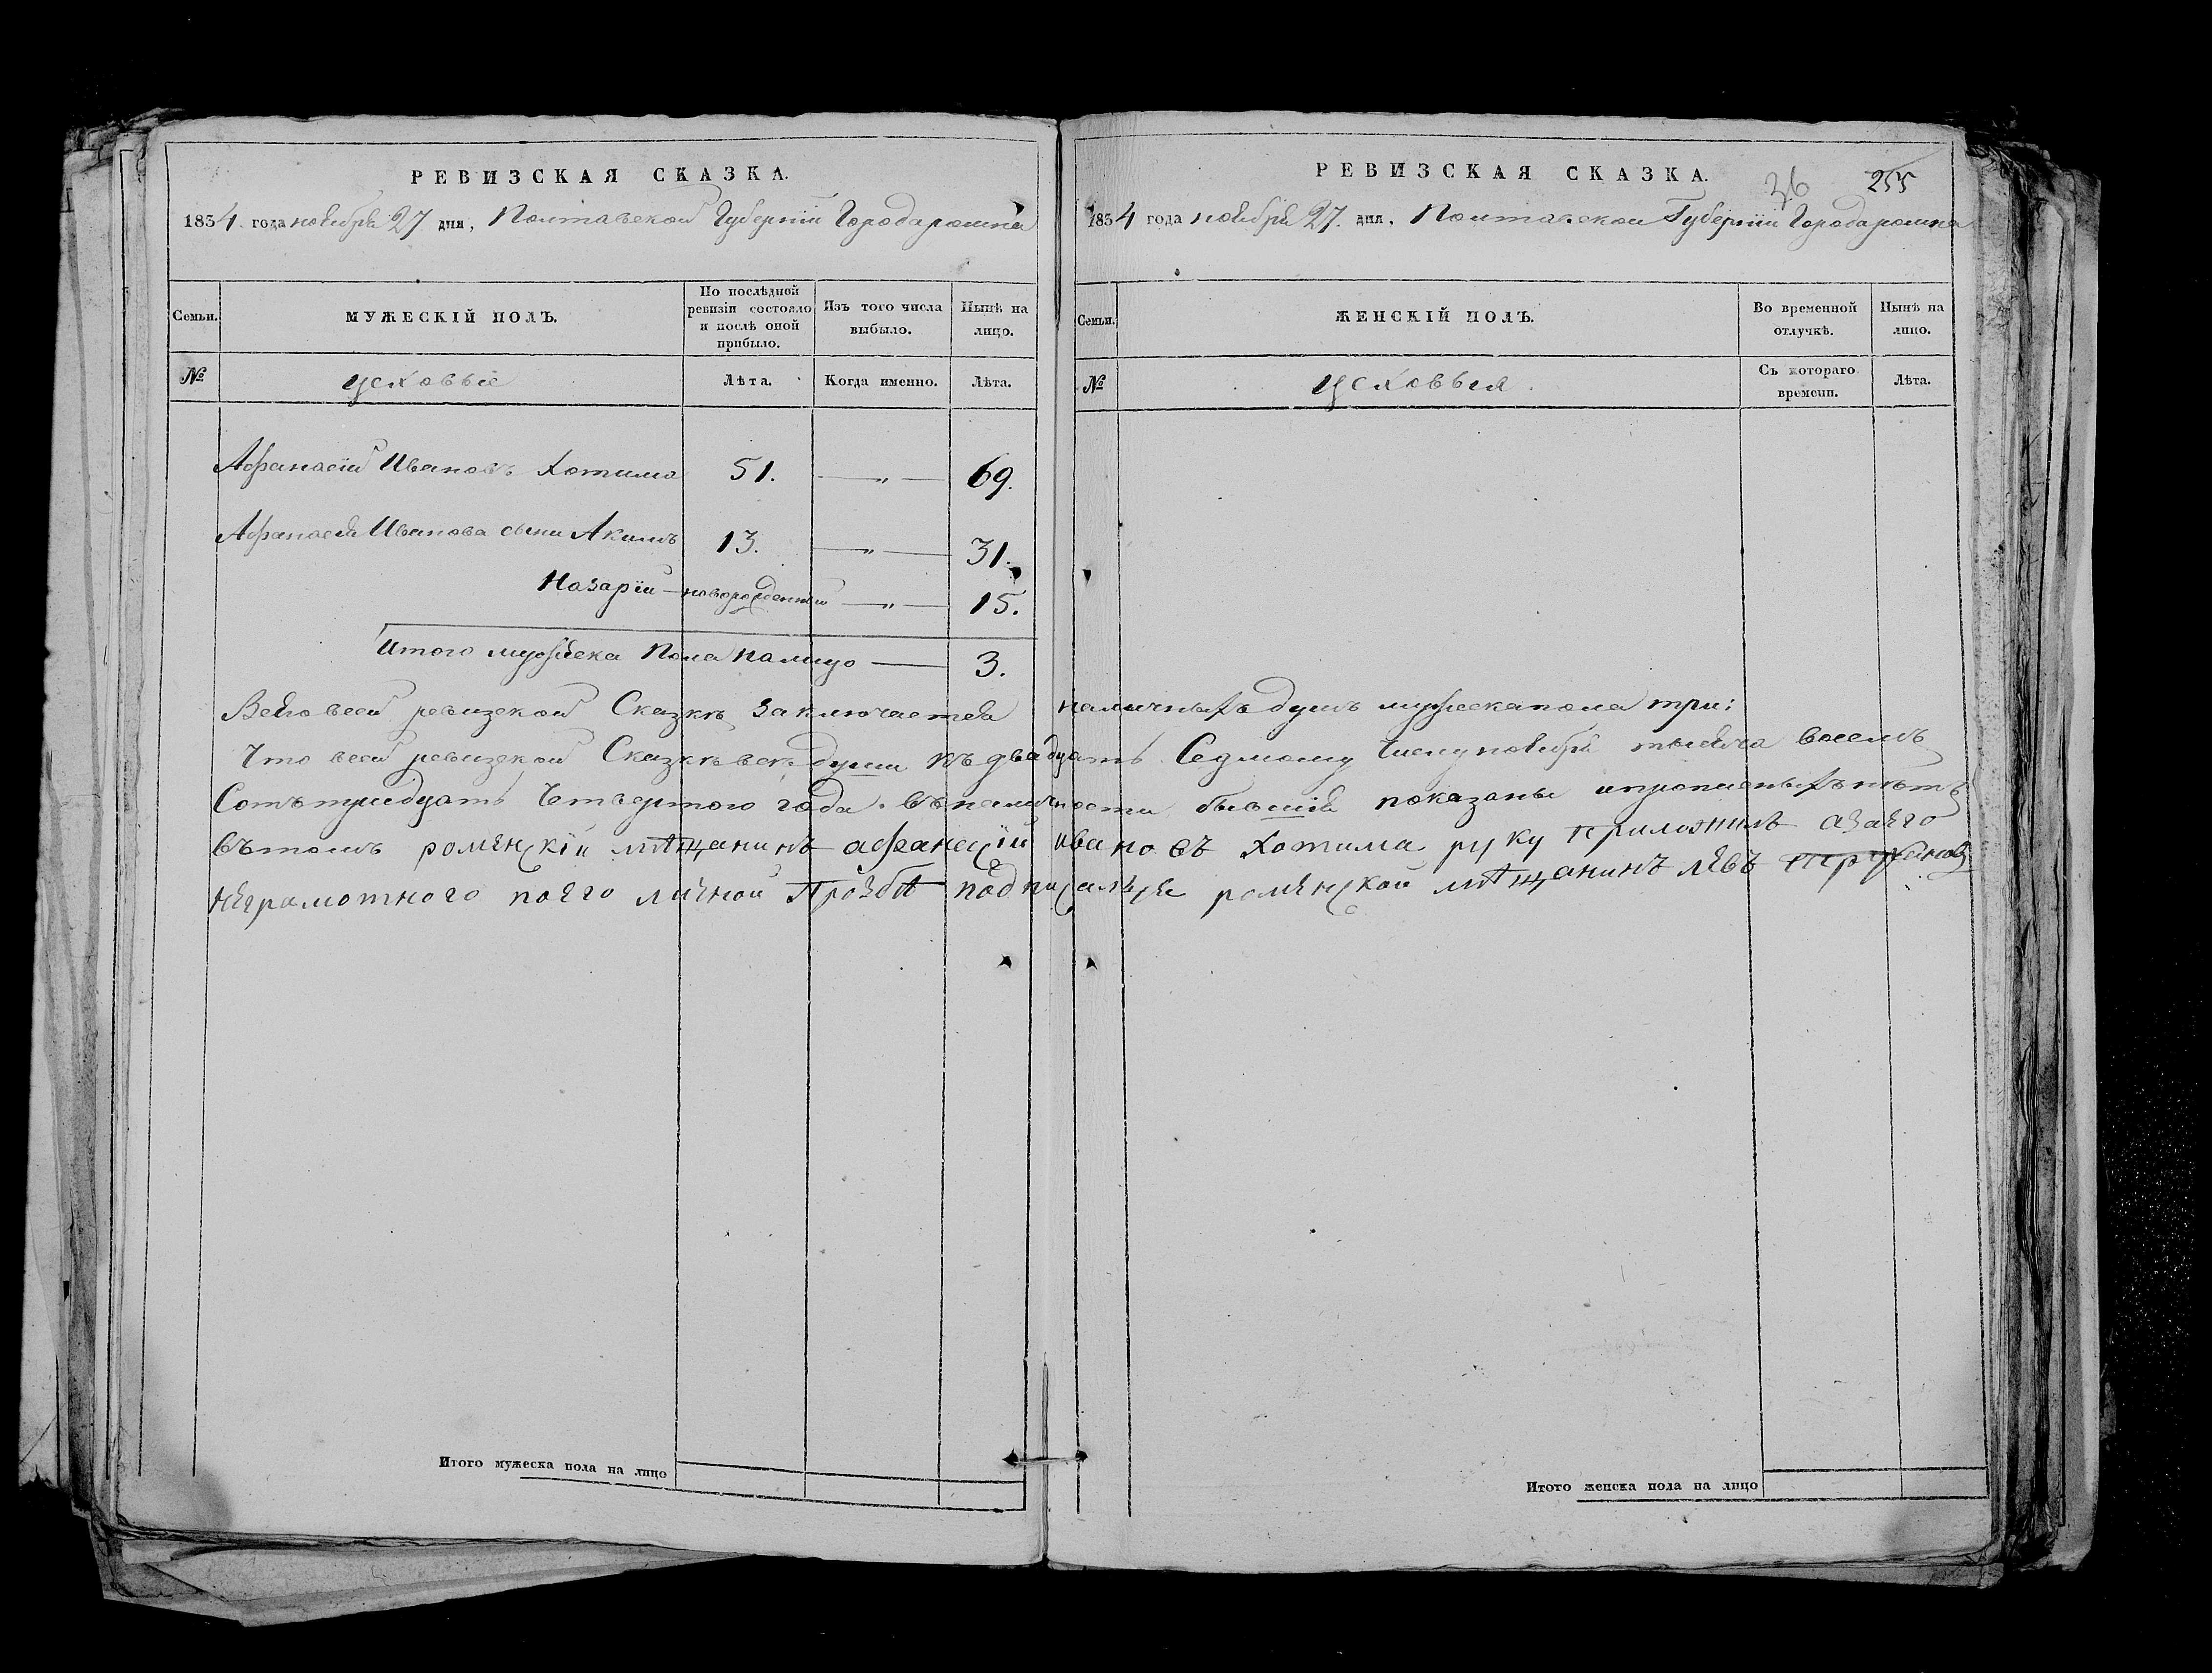 РЕВИЗСКАЯ СКАЗКА.
1834 года ноября 27 дня, Полтавской Губернии Города ромна
Семьи.
МУЖЕСКІЙ ПОЛЪ.
По послѣдней ревизіи состояло и послѣ оной прибыло.
Изъ того числа выбыло.
Нынѣ на лицо.
№
Лѣта.
Когда именно.
Лѣта.
Афанасій Ивановъ Хотима 51. — „ — 69.
Афанасія Иванова сыни Акимъ 13. — „ — 31.
Назарій — новорожденный — „ — 15.
Итого мужеска Пола налицо — 3.
РЕВИЗСКАЯ СКАЗКА.
26 255
1834 года ноября 27. дня, Полтавской Губерніи Города ромна
Семьи.
ЖЕНСКІЙ ПОЛЪ.
Во временной отлучкѣ.
Нынѣ на лицо.
№
Съ котораго времени.
Лѣта.
Всего всей ревизской Сказкѣ заключается наличныхъ душъ мужеска пола три:
Что всей ревизской Сказкѣ всѣ души къ двадцать Седмому Числу ноября тысяча восемъ
Сотъ тридцать Четвертого года въ наличности бывшія показаны и прописныхъ нѣтъ
въ томъ роменскій мѣщанинъ афанасій ивановъ Хотима руку приложилъ а за его
неграмотного по его личной Прозбѣ подписался роменской мѣщанинъ левъ
Итого мужеска пола на лицо
Итого женска пола на лицо